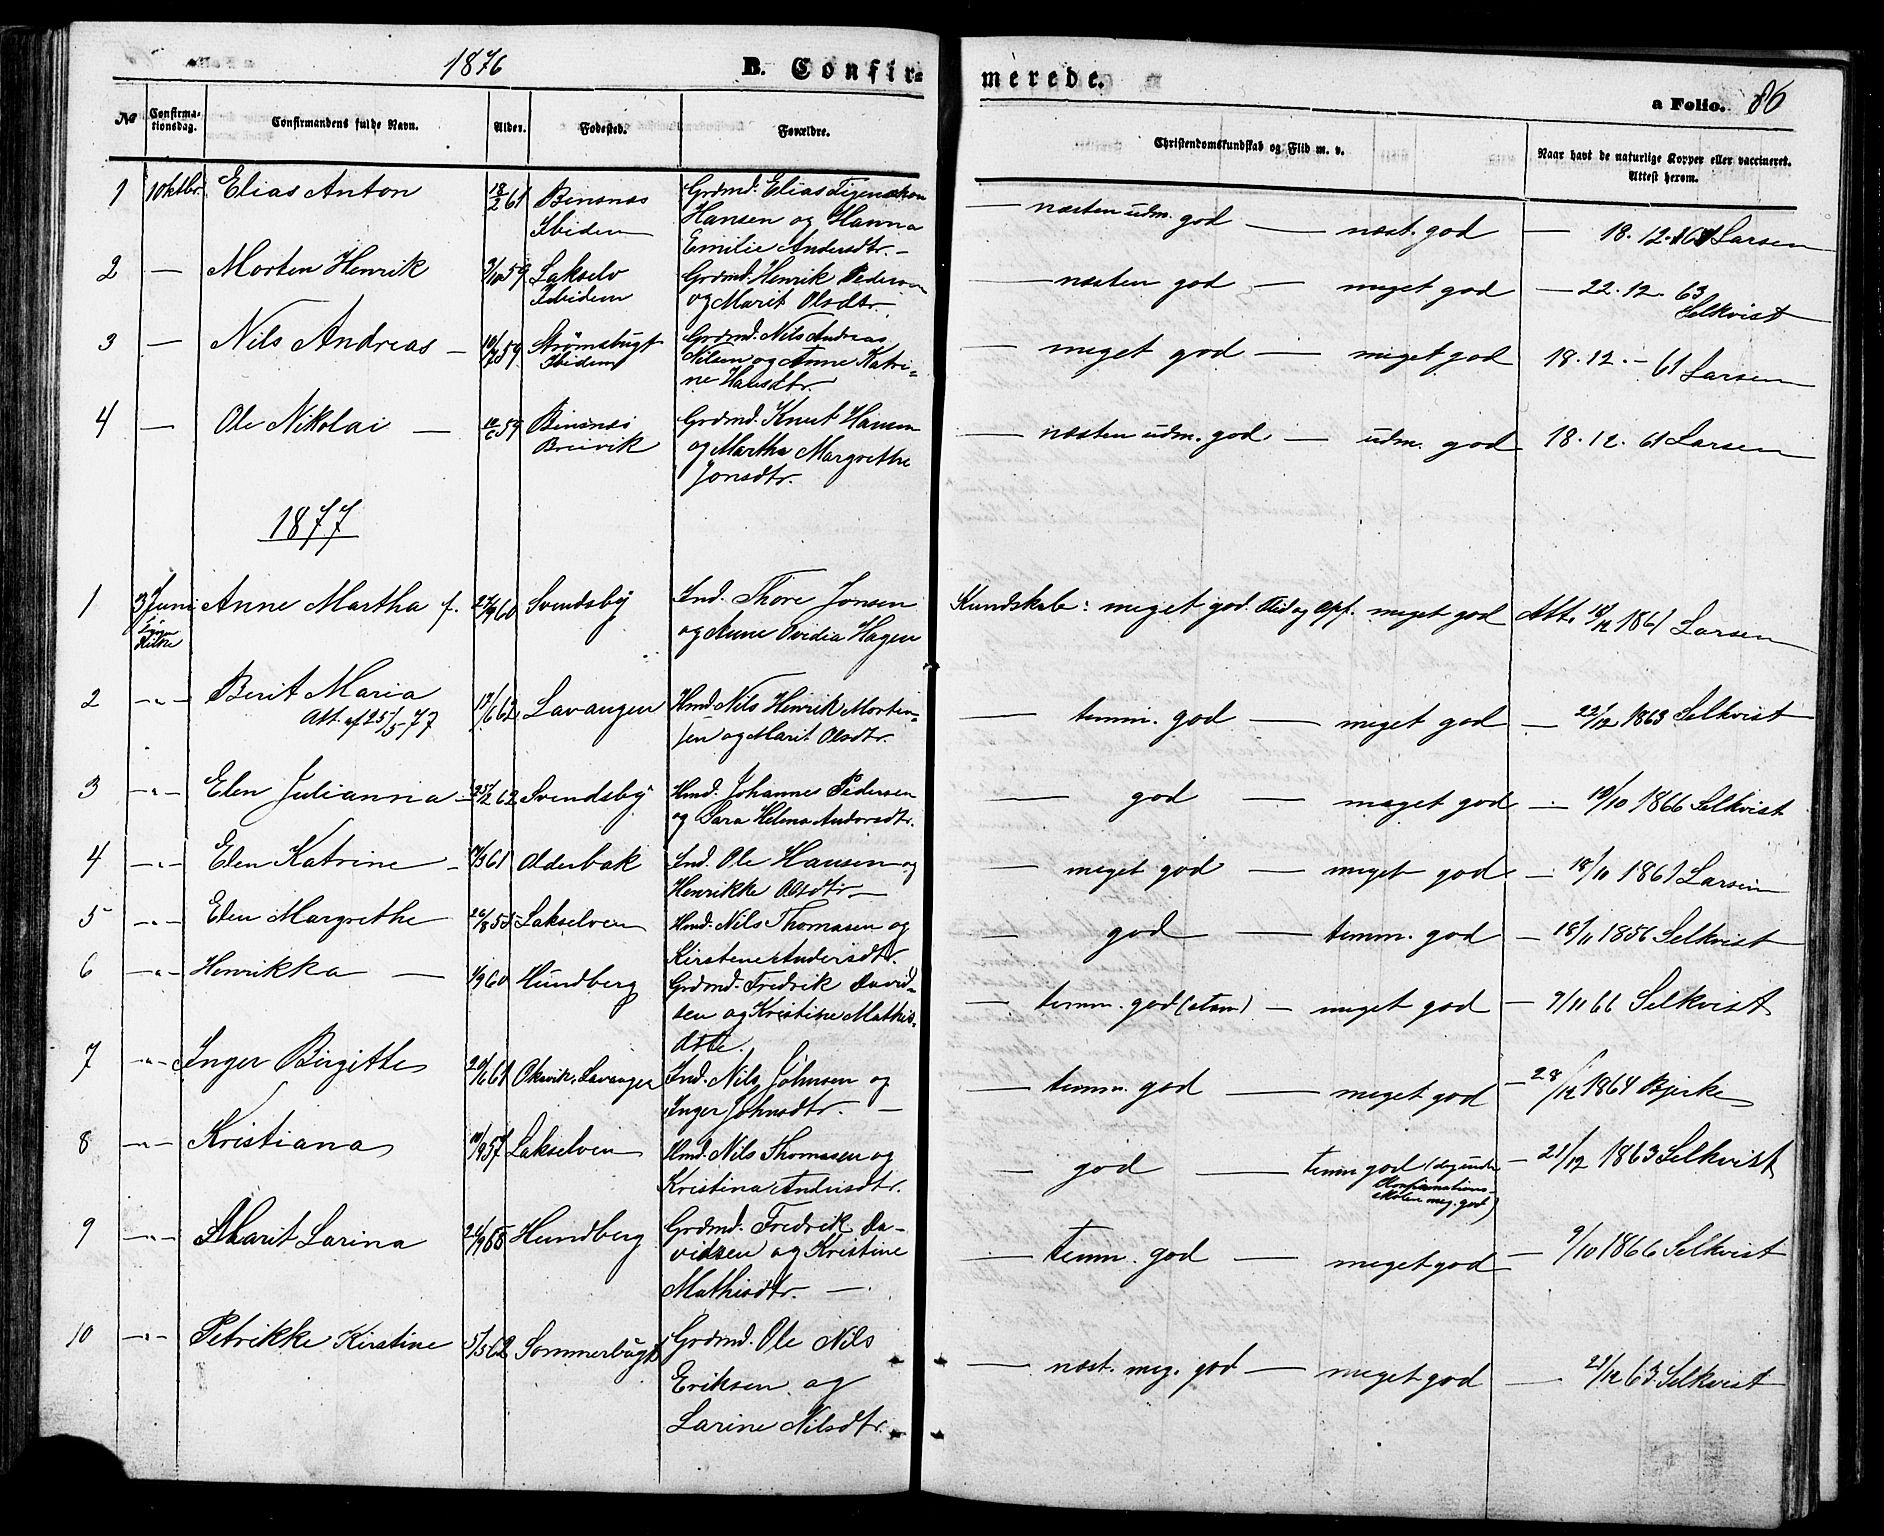 1876
B. Confir-
merede.
a Folio. 86
No
Confirma-
tionsdag.
Confirmandens fulde Navn.
Alder.
Fødested.
Forældre.
Christendomskundskab og Flid m. v.
Naar havt de naturlige Kopper eller vaccineret.
Attest herom.
1 1 Oktbr. Elias Anton 18/2 61 Binsnæs Grdmd. Elias
Ibidem Hansen og Hanna
Emilie Andersdtr. -
— næsten udm. god — næst. god — 18. 12. Larsen
2 — Morten Henrik 59 Lakselv Grdmd. Henrik Pedersen
Ibidem og Marit Olsdtr.
— næsten god — meget god — 22. 12. 63
Selkvist
3 — Nils Andreas — 59 Strømsbugt Grdmd. Nils Andreas
Ibidem Nilsen og Anne Katri-
ne Hansdtr.
— meget god — meget god 18. 12. - 61 Larsen
4 — Ole Nikolai — 59 Binsnæs Grdmd. Knut Hansen
Breivik og Martha Margrethe
Jonsdtr.
— næsten udm. god — udm. god 18. 12. 61 Larsen
1877
1 3 Juni Anne Martha f. 60 Svendsby Ind. Thore Jonsen
Kirke og Anne Ovidia Hagen
Kundskab: meget god. Flid og Opf. meget god Att. 18/12 1861 Larsen
2 -„- Berit Maria 17/6 62 Lavangen Hmd. Nils Henrik Morten-
Att. af 25/5-77 sen og Marit Olsdtr.
— temm. god — meget god — 22/12 1863 Selkvist
3 -„- Elen Julianna 62 Svendsby Hmd. Johannes Pedersen
og Sara Helena Andersdtr.
— god — meget god — 10/10 1866 Selkvist
4 -„- Elen Katrine 61 Olderbak Ind. Ole Hansen og
Henrikke Olsdtr —
— meget god — meget god — 18/11 1861 Larsen
5 -„- Elen Margrethe 26/8 55 Lakselven Hmd. Nils Thomasen og
Kirstene Andersdtr.
— god — temm. god — 18/11 1856 Selkvist
6 -„- Henrikka — 60 Hundberg Grdmd. Fredrik David-
sen og Kristine Mathis-
dtr.
— temm. god (stam) — meget god — 9/11 66 Selkvist
7 -„- Inger Birgithe 61 Oksvik, Lavangen Ind. Nils Johnsen og
Inger Johnsdtr. —
— temm. god — meget god — 28/12 1864 Bjerke
8 -„- Kristiana 57 Lakselven Hmd. Nils Thomasen og
Kristina Andersdtr.
— god — temm god (og under
Konfirmations-
skolen meg. god) — 21/12 1863 Selkvist
9 -„- Marit Larina 58 Hundberg Grdmd. Fredrik Da-
vidsen og Kristine
Mathisdtr. —
— temm. god — meget god — 9/10 1866 Selkvist
10 -„- Petrikke Kirstine 5/5 62 Sommerbugt Grdmd. Ole Nils
Eriksen og
Larine Nilsdtr.
— næst. meg. god — meget god — 21/12 63 Selkvist